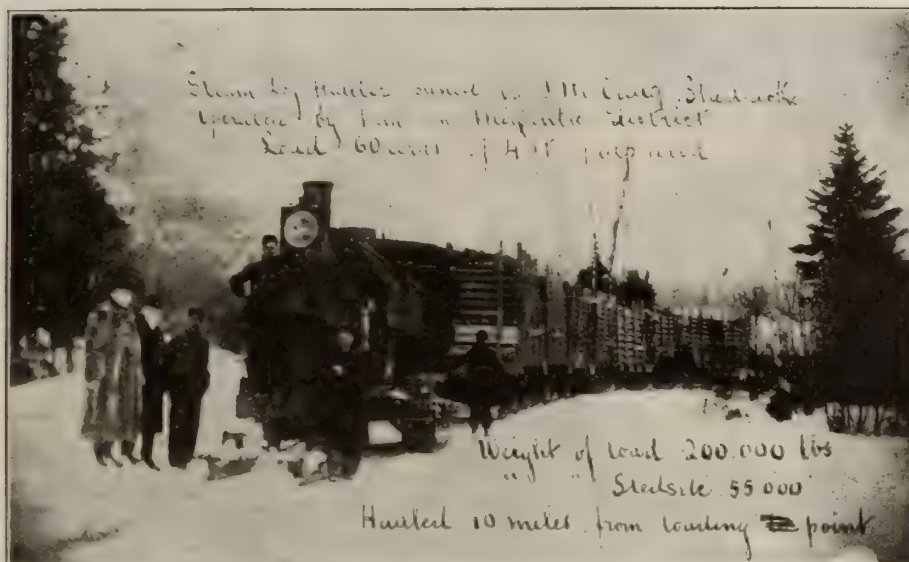 Steam Log Hauler owned
operated by him in Megantic District
Load 60 4 ft
Weight of load 200.000 lbs
" " Sledsite 55 000
Hauled 10 miles from loading point